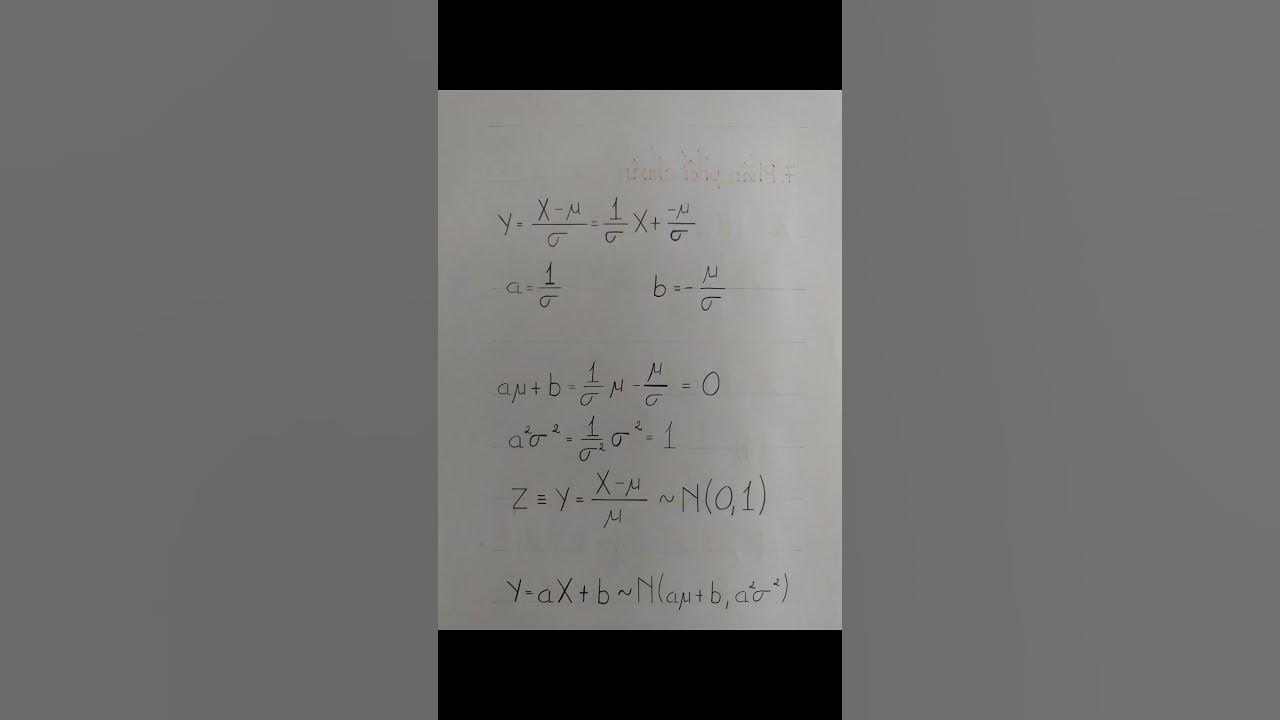 7. Phân phối chuẩn
Y = (X - μ)/σ = (1/σ) X + (-μ)/σ
a = 1/σ b = - μ/σ
aμ + b = (1/σ) μ - μ/σ = 0
a²σ² = (1/σ²) σ² = 1
Z ≡ Y = (X - μ)/μ ~ N(0,1)
Y = aX + b ~ N(aμ + b, a²σ²)